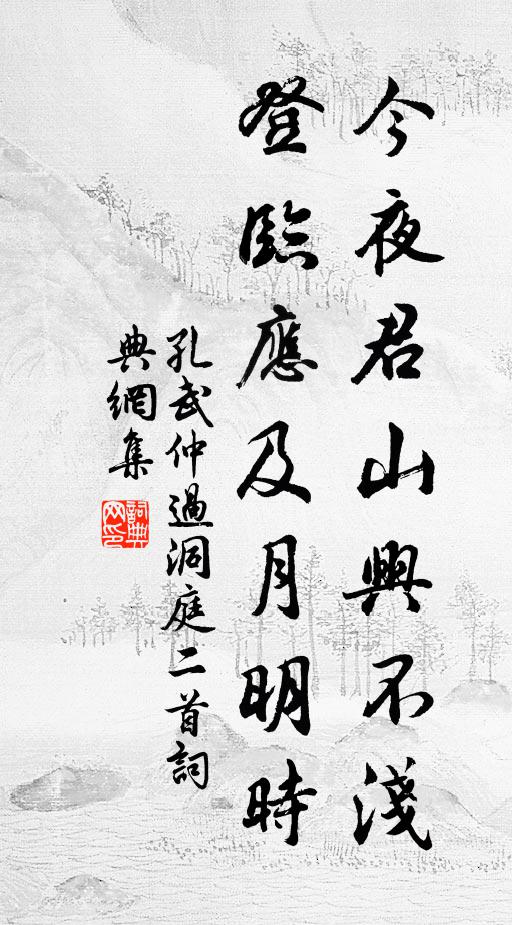 今夜君山興不淺
登臨應及月明時
孔武仲過洞庭二首詞
典網集
詞典
网印